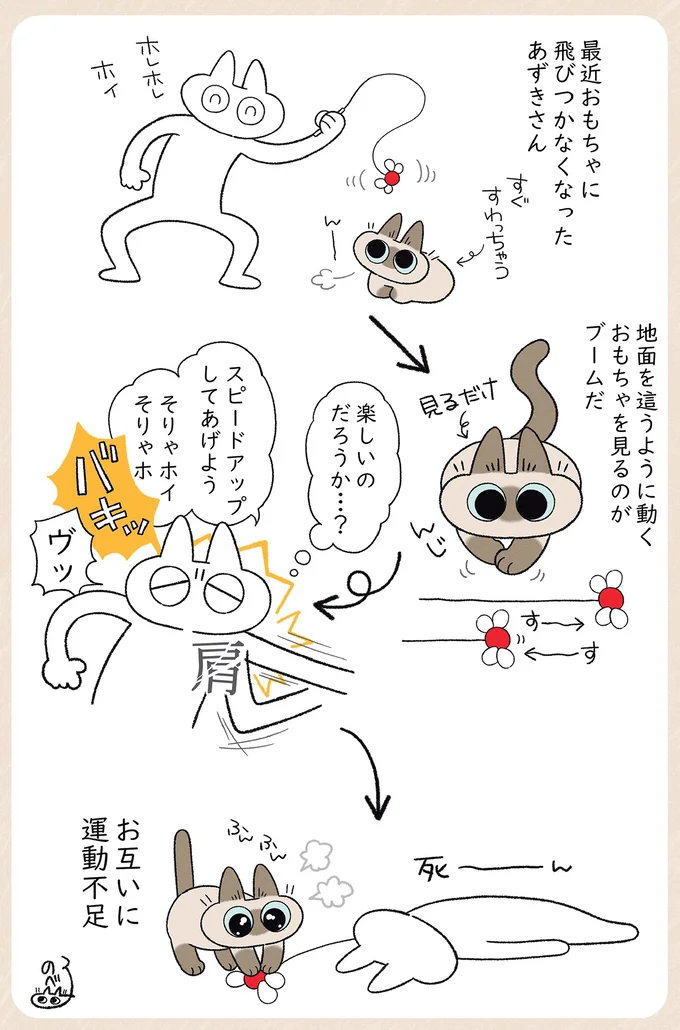 最近おもちゃに
飛びつかなくなった
あずきさん
ホレホレ
ホイ
すぐ
すわっちゃう
んー
地面を這うように動く
おもちゃを見るのが
ブームだ
見るだけ
んじ
すー
ーす
楽しいの
だろうか…?
スピードアップ
してあげよう
そりゃホイ
そりゃホ
バキッ
ヴッ
肩
死ーーん
ふんふん
お互いに
運動不足